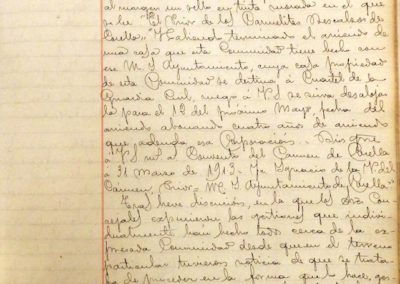 al margen un sello en tinta rosada en el que
se lee "El Prior de los Carmelitas Descalzos de
Cuella". "Habiend terminado el arriendo de
una casa que esta Comunidad tiene hecho con
ese M. Y. Ayuntamiento, cuya casa propiedad
de esta Comunidad se destina á Cuartel de la
Guardia Civil, ruego á V. S. se sirva desalojar
la para el 12 del próximo Mayo, fecha del
arriendo abonando cuatro años de arriendo
que adeuda esa Corporacion. Dios gue
á V. S. m. a. Convento del Carmen de
á 31 Marzo de 1913. Fr. Ignacio de la V. del
Carmen, Prior. M. Y. Ayuntamiento de
Tras breve discusión, en la que los Sres Con
cejales expusieron las gestiones que indivi-
dualmente han hecho todos cerca de la ex-
presada Comunidad desde que en el terreno
particular tuvieron noticia de que se trata
de proceder en la forma que lo hace,